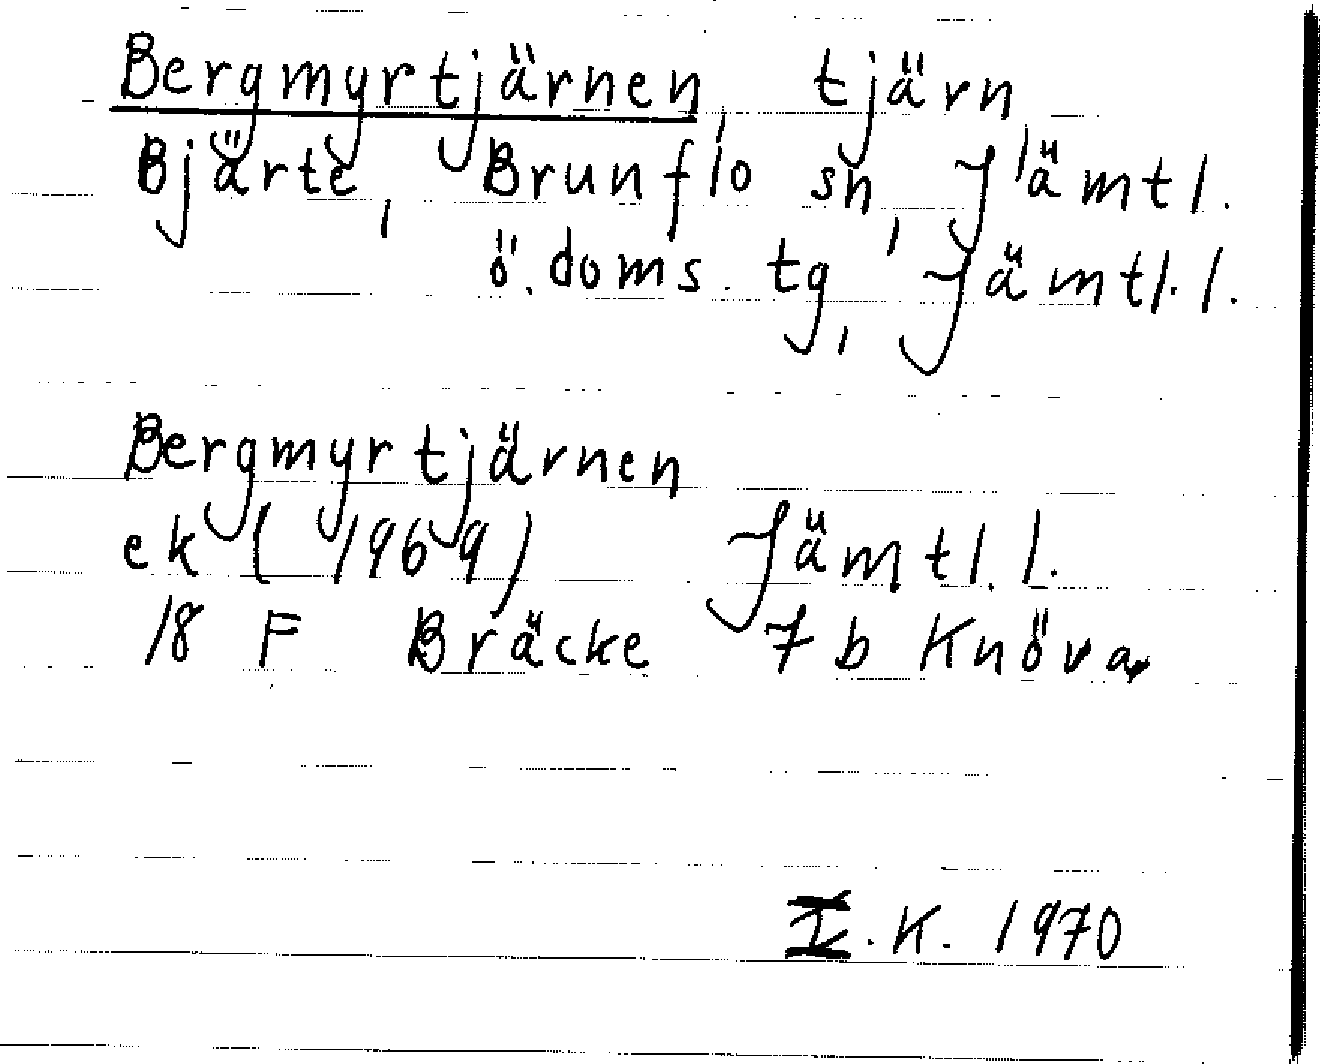 Bergmyrtjärnen, tjärn,
Bjärte, Brunflo sn, Jämtl.
ö. doms. tg, Jämtl. l.
Bergmyrtjärnen
ek (1969) Jämtl. l.
18 F Bräcke 7 b Knöva
I.K. 1970